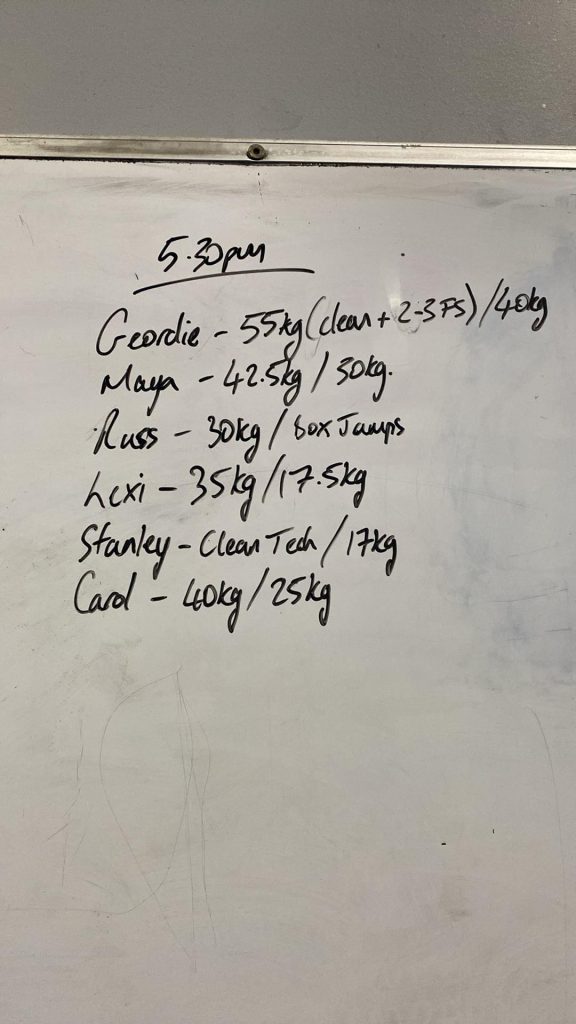 5.30pm
Geordie - 55kg (clean + 2-3 FS) / 40kg
Maya - 42.5kg / 30kg.
Russ - 30kg / box Jumps
Lexi - 35kg / 17.5kg
Stanley - Clean Tech / 17kg
Carol - 40kg / 25kg